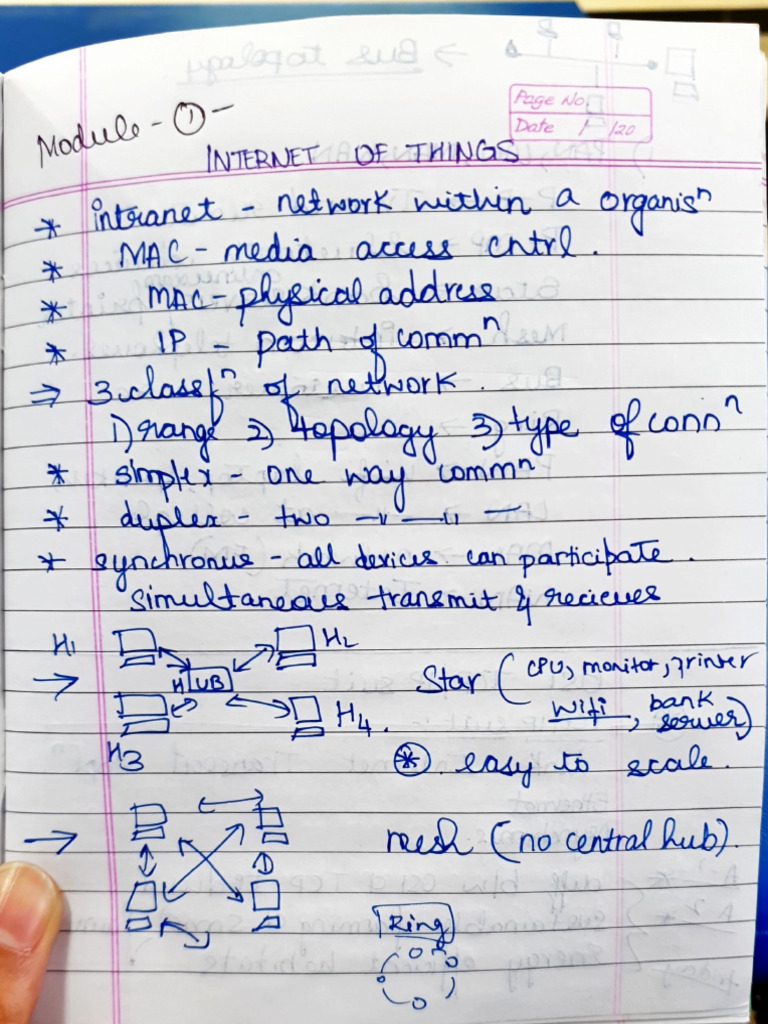 Page No.
Date / /20
Module - ① -
INTERNET OF THINGS
* intranet - network within a organisⁿ
* MAC - media access cntrl.
* MAC - physical address
* IP - path of commⁿ
⇒ 3.classfⁿ of network.
1) range 2) topology 3) type of connⁿ
* simplex - one way commⁿ
* duplex - two —"— —"— —
* synchronus - all devices can participate.
simultaneous transmit & recieves
H1 H2
→ HUB Star (CPU, monitor, printer
H4. wifi, bank server)
H3 ⊛. easy to scale.
→ mesh (no central hub).
Ring